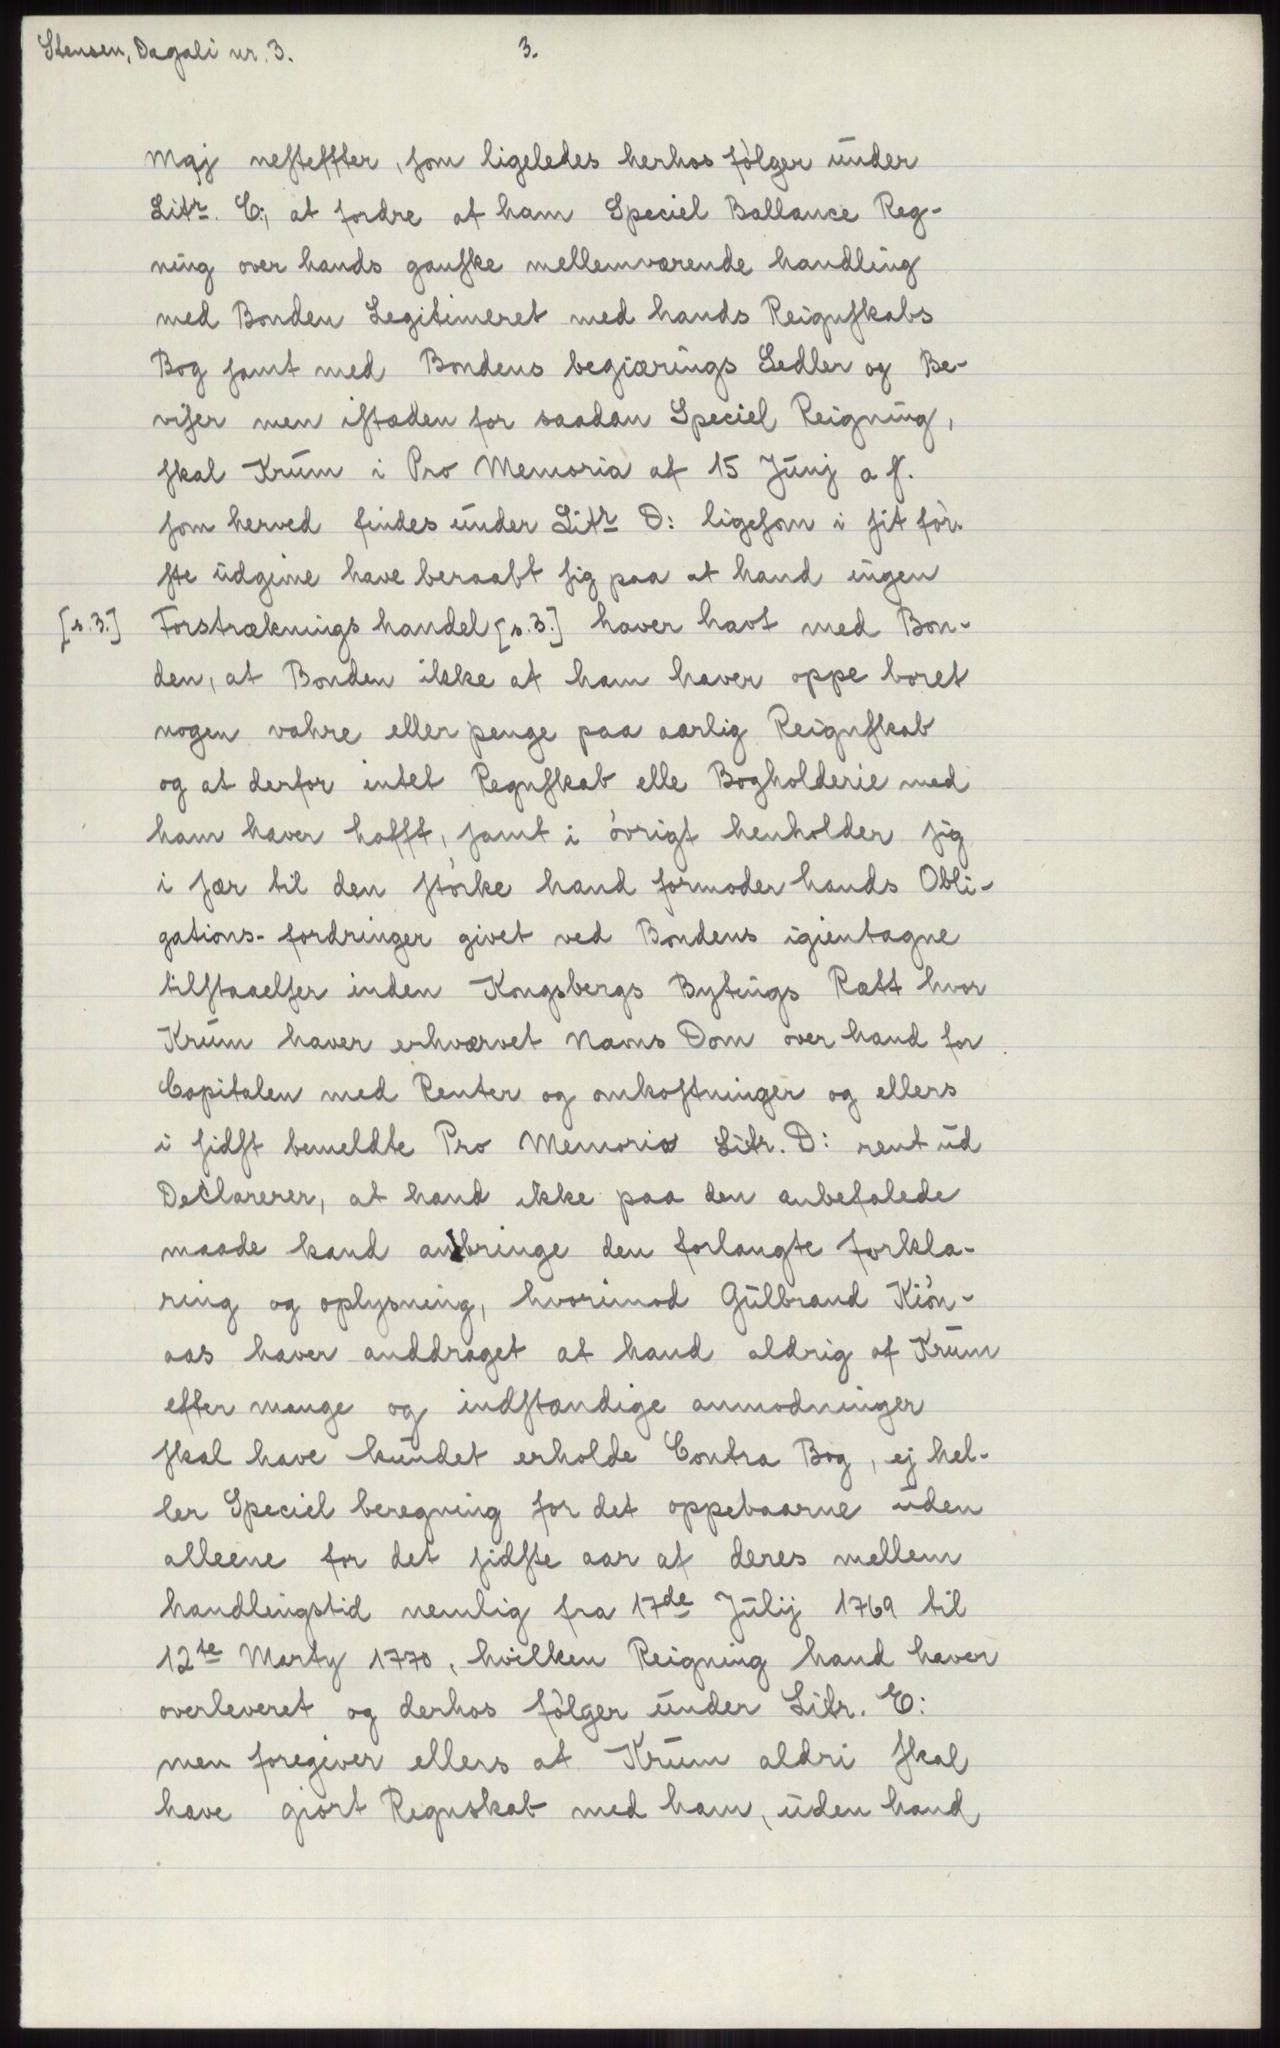 Stensen, Dagali nr. 3.
3.
Maj nesteffter, som ligeledes herhos følger under
Litr. C:, at fordre af ham Speciel Ballance Reg-
ning over hands ganske mellemværende handling
med Bonden Legitimeret med hands Reignskabs
Bog samt med Bondens begiærings Sedler og Be-
viser men istæden for saadan Speciel Reigning,
skal Krum i Pro Memoria af 15 Junj a f.
som herved findes under Litr D: ligesom i sit før-
ste udgivne have beraabt sig paa at hand ingen
[s. 3.] Forstræknings handel [s. 3.] haver havt med Bon-
den, at Bonden ikke af ham haver oppe boret
nogen vahre eller penge paa aarlig Reignskab
og at derfor intet Regnskab elle Bogholderie med
ham haver hafft, samt i øvrigt henholder sig
i sær til den störke hand formoder hands Obli-
gations-fordringer givet ved Bondens igientagne
tilstaaelser inden Kongsbergs Bytings Rætt hvor
Krum haver erhvervet Navns Dom over hand for
Capitalen med Renter og omkostninger og ellers
i sidst bemeldte Pro Memoria Litr. D: rent ud
Declarerer, at hand ikke paa den anbefalede
maade kand anbringe den forlangte forkla-
ring og oplysning, hvorimod Gulbrand Kiøn-
aas haver anddraget at hand aldrig af Krum
efter mange og indstændige anmodninger
skal have kundet erholde Contra Bog, ej hel-
ler Speciel beregning for det oppebaarne uden
alleene for det sidste aar af deres mellem
handlingstid nemlig fra 17de Julij 1769 til
12te Marty 1770, hvilken Reigning hand haver
overleveret og derhos følger under Litr. E:
men foregiver ellers at Krum aldri skal
have giort Regnskab med ham, uden hand